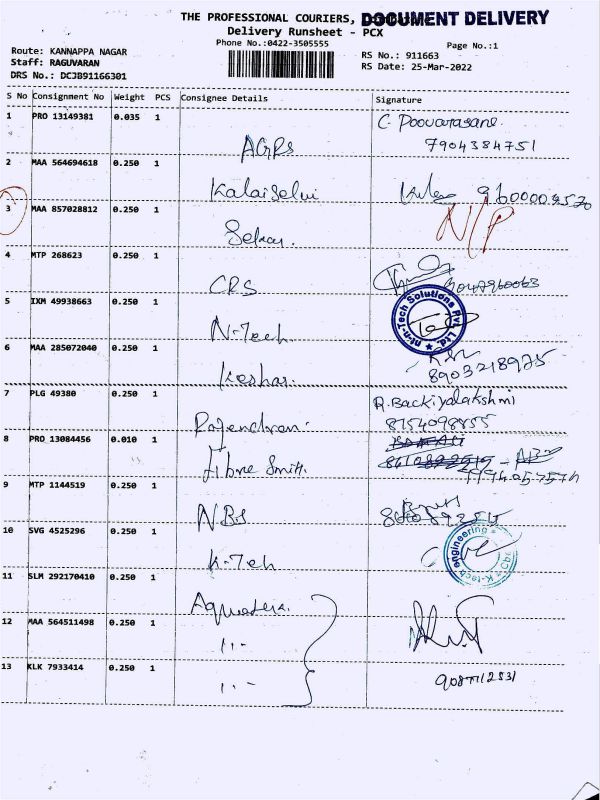 THE PROFESSIONAL COURIERS,
DOCUMENT DELIVERY
Delivery Runsheet - PCX
Phone No.:0422-3505555
Page No.:1
Route: KANNAPPA NAGAR
Staff: RAGUVARAN
DRS No.: DCJB91166301
RS No.: 911663
RS Date: 25-Mar-2022
S No Consignment No Weight PCS Consignee Details Signature
1 PRO 13149381 0.035 1
AGPS
C. Poovarasane
7904384751
2 MAA 564694618 0.250 1
Kalaiselvi
3 MAA 857028812 0.250 1
Sekar.
N/P
4 MTP 268623 0.250 1
CRS
5 IXM 49938663 0.250 1
N-Tech
nt-n-Tech Solutions Pvt. Ltd.
6 MAA 285072040 0.250 1
Keshar.
8903218975
7 PLG 49380 0.250 1
Rajendran.
R. Backiyalakshmi
8754098855
8 PRO 13084456 0.010 1
Fibre Smith
9 MTP 1144519 0.250 1
NBS
10 SVG 4525296 0.250 1
K-Teh
K-tech engineering
11 SLM 292170410 0.250 1
12 MAA 564511498 0.250 1
13 KLK 7933414 0.250 1